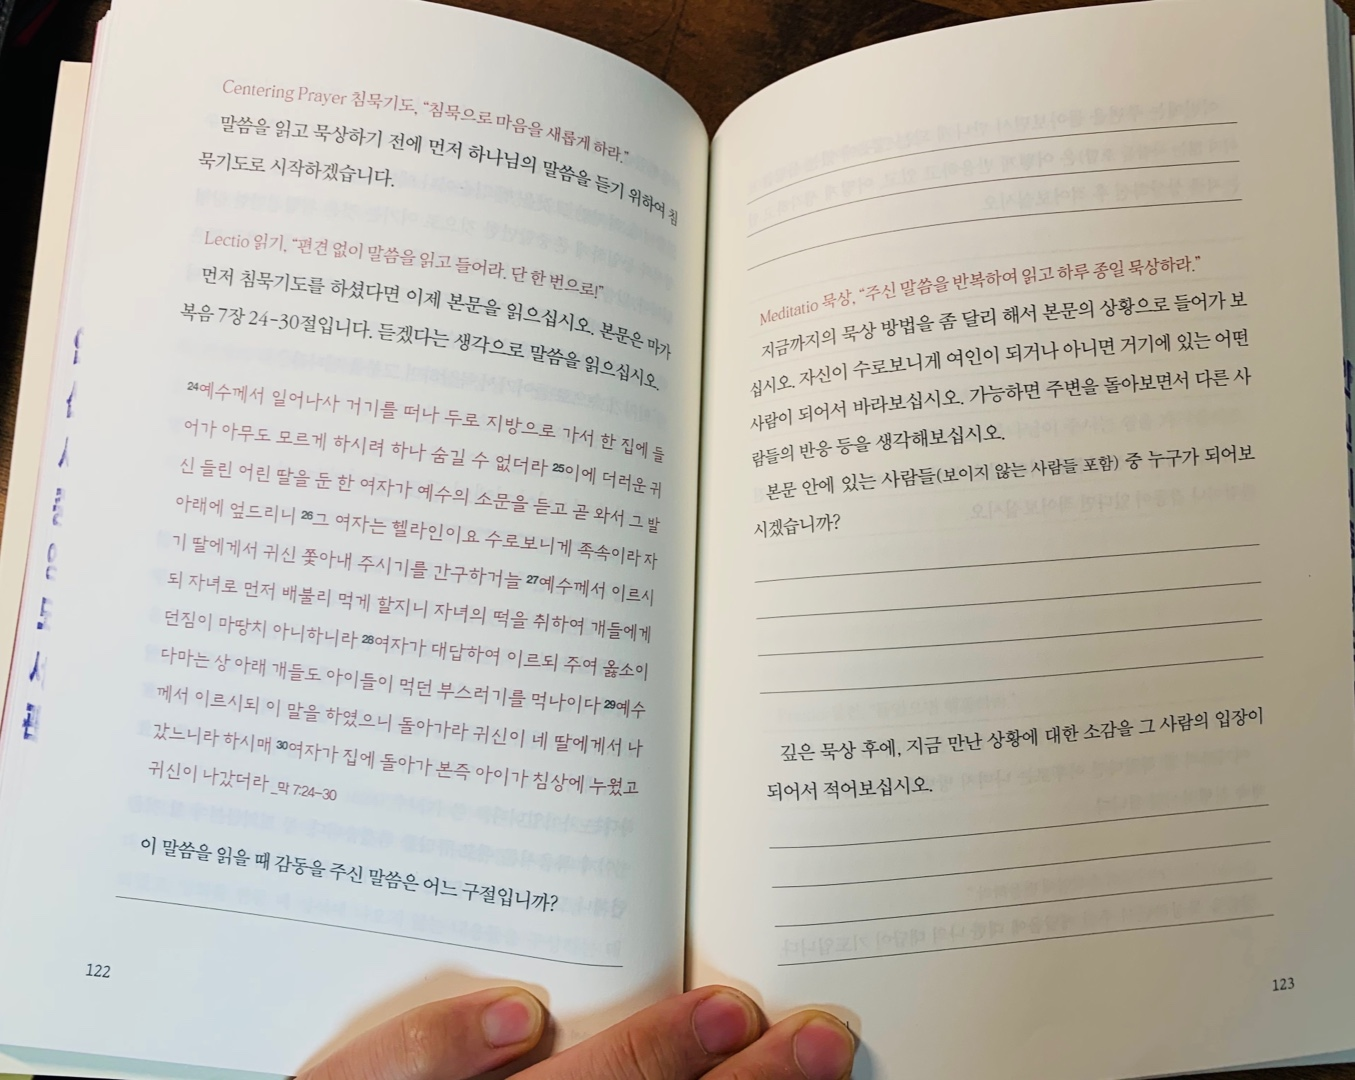 Centering Prayer 침묵기도, “침묵으로 마음을 새롭게 하라.”
말씀을 읽고 묵상하기 전에 먼저 하나님의 말씀을 듣기 위하여 침
묵기도로 시작하겠습니다.
Lectio 읽기, “편견 없이 말씀을 읽고 들어라. 단 한 번으로!”
먼저 침묵기도를 하셨다면 이제 본문을 읽으십시오. 본문은 마가
복음 7장 24-30절입니다. 듣겠다는 생각으로 말씀을 읽으십시오.
24예수께서 일어나사 거기를 떠나 두로 지방으로 가서 한 집에 들
어가 아무도 모르게 하시려 하나 숨길 수 없더라 25이에 더러운 귀
신 들린 어린 딸을 둔 한 여자가 예수의 소문을 듣고 곧 와서 그 발
아래에 엎드리니 26그 여자는 헬라인이요 수로보니게 족속이라 자
기 딸에게서 귀신 쫓아내 주시기를 간구하거늘 27예수께서 이르시
되 자녀로 먼저 배불리 먹게 할지니 자녀의 떡을 취하여 개들에게
던짐이 마땅치 아니하니라 28여자가 대답하여 이르되 주여 옳소이
다마는 상 아래 개들도 아이들이 먹던 부스러기를 먹나이다 29예수
께서 이르시되 이 말을 하였으니 돌아가라 귀신이 네 딸에게서 나
갔느니라 하시매 30여자가 집에 돌아가 본즉 아이가 침상에 누웠고
귀신이 나갔더라 _막 7:24-30
이 말씀을 읽을 때 감동을 주신 말씀은 어느 구절입니까?
122
Meditatio 묵상, “주신 말씀을 반복하여 읽고 하루 종일 묵상하라.”
지금까지의 묵상 방법을 좀 달리 해서 본문의 상황으로 들어가 보
십시오. 자신이 수로보니게 여인이 되거나 아니면 거기에 있는 어떤
사람이 되어서 바라보십시오. 가능하면 주변을 돌아보면서 다른 사
람들의 반응 등을 생각해보십시오.
본문 안에 있는 사람들(보이지 않는 사람들 포함) 중 누구가 되어보
시겠습니까?
깊은 묵상 후에, 지금 만난 상황에 대한 소감을 그 사람의 입장이
되어서 적어보십시오.
123